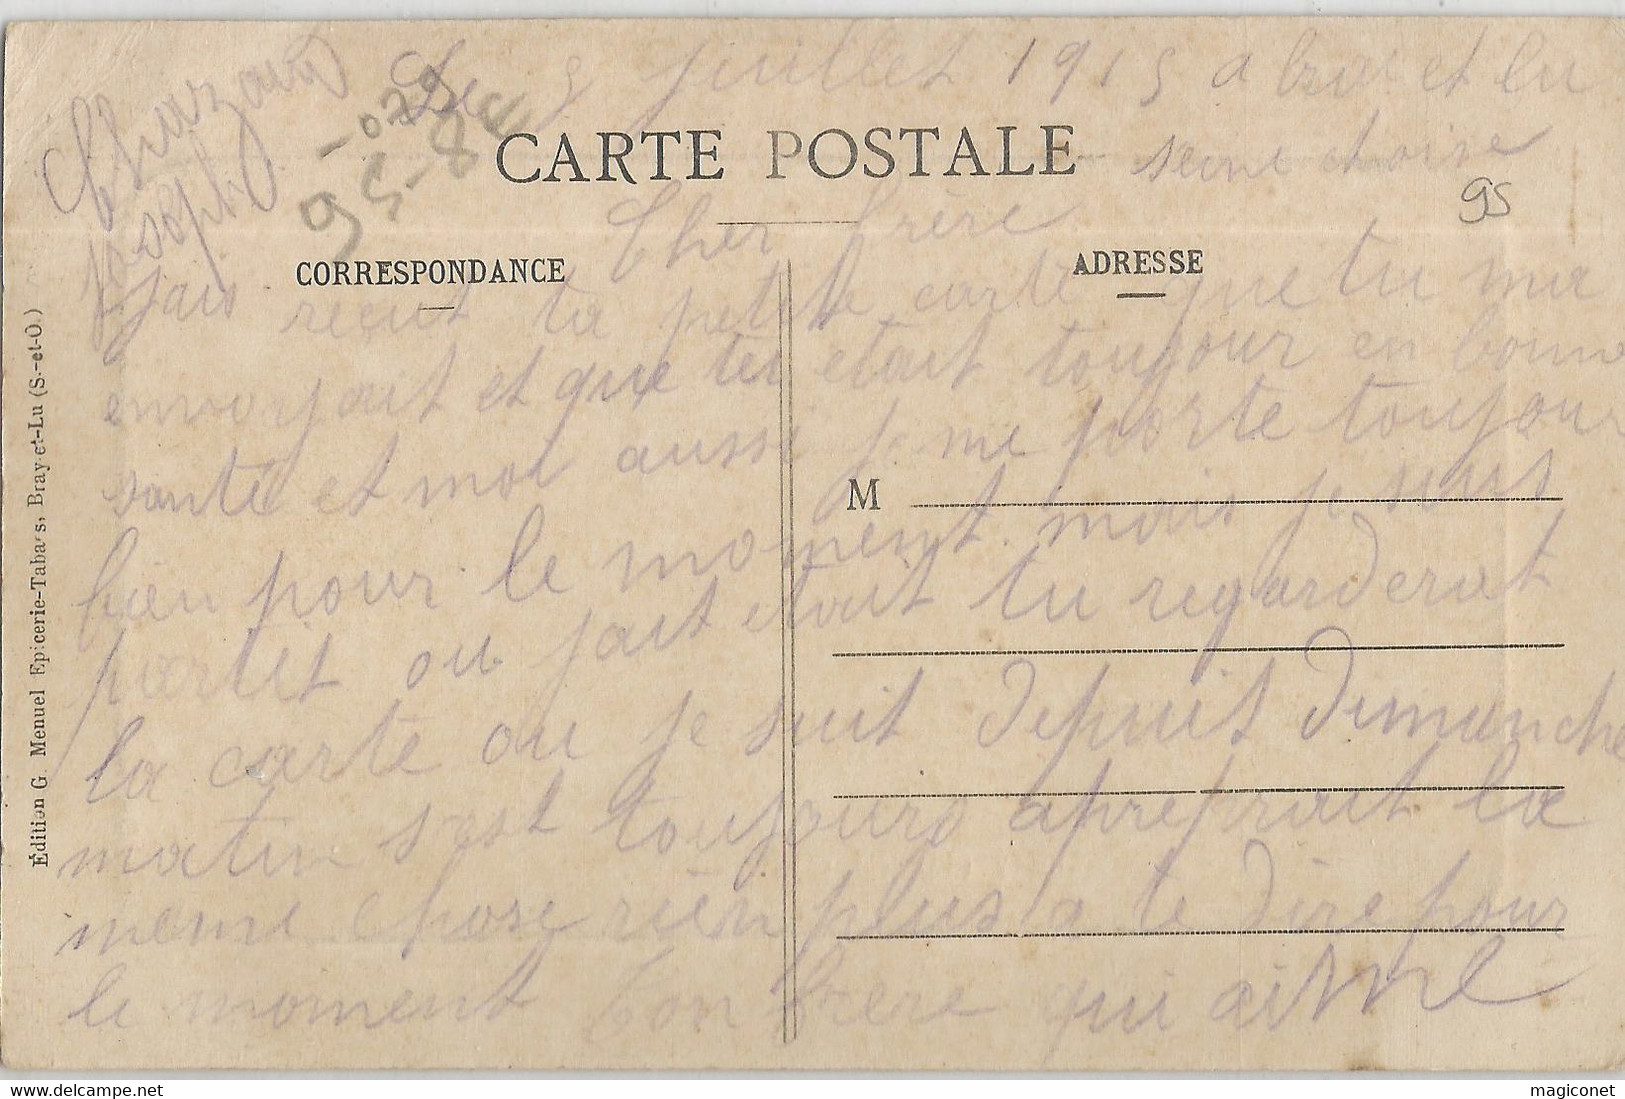 Le 9 juillet 1915 a brai et lu
seine et oise
Chazaud
Joseph
95-8
-029
95
CARTE POSTALE
CORRESPONDANCE
ADRESSE
M
Cher frère
jais recut ta petite carte que tu ma
envoyait et que tu etait toujour en bonne
santé et moi aussi je me porte toujour
bien pour le moment mais je suis
partit ou jait etait tu regarderat
la carte ou je suit depuit dimanche
matin sest toujours apreprait la
meme chose rien plus a te dire pour
le moment ton frère qui aime
Édition G. Menuel Epicerie-Tabacs, Bray-et-Lu (S.-et-O.)
magiconet